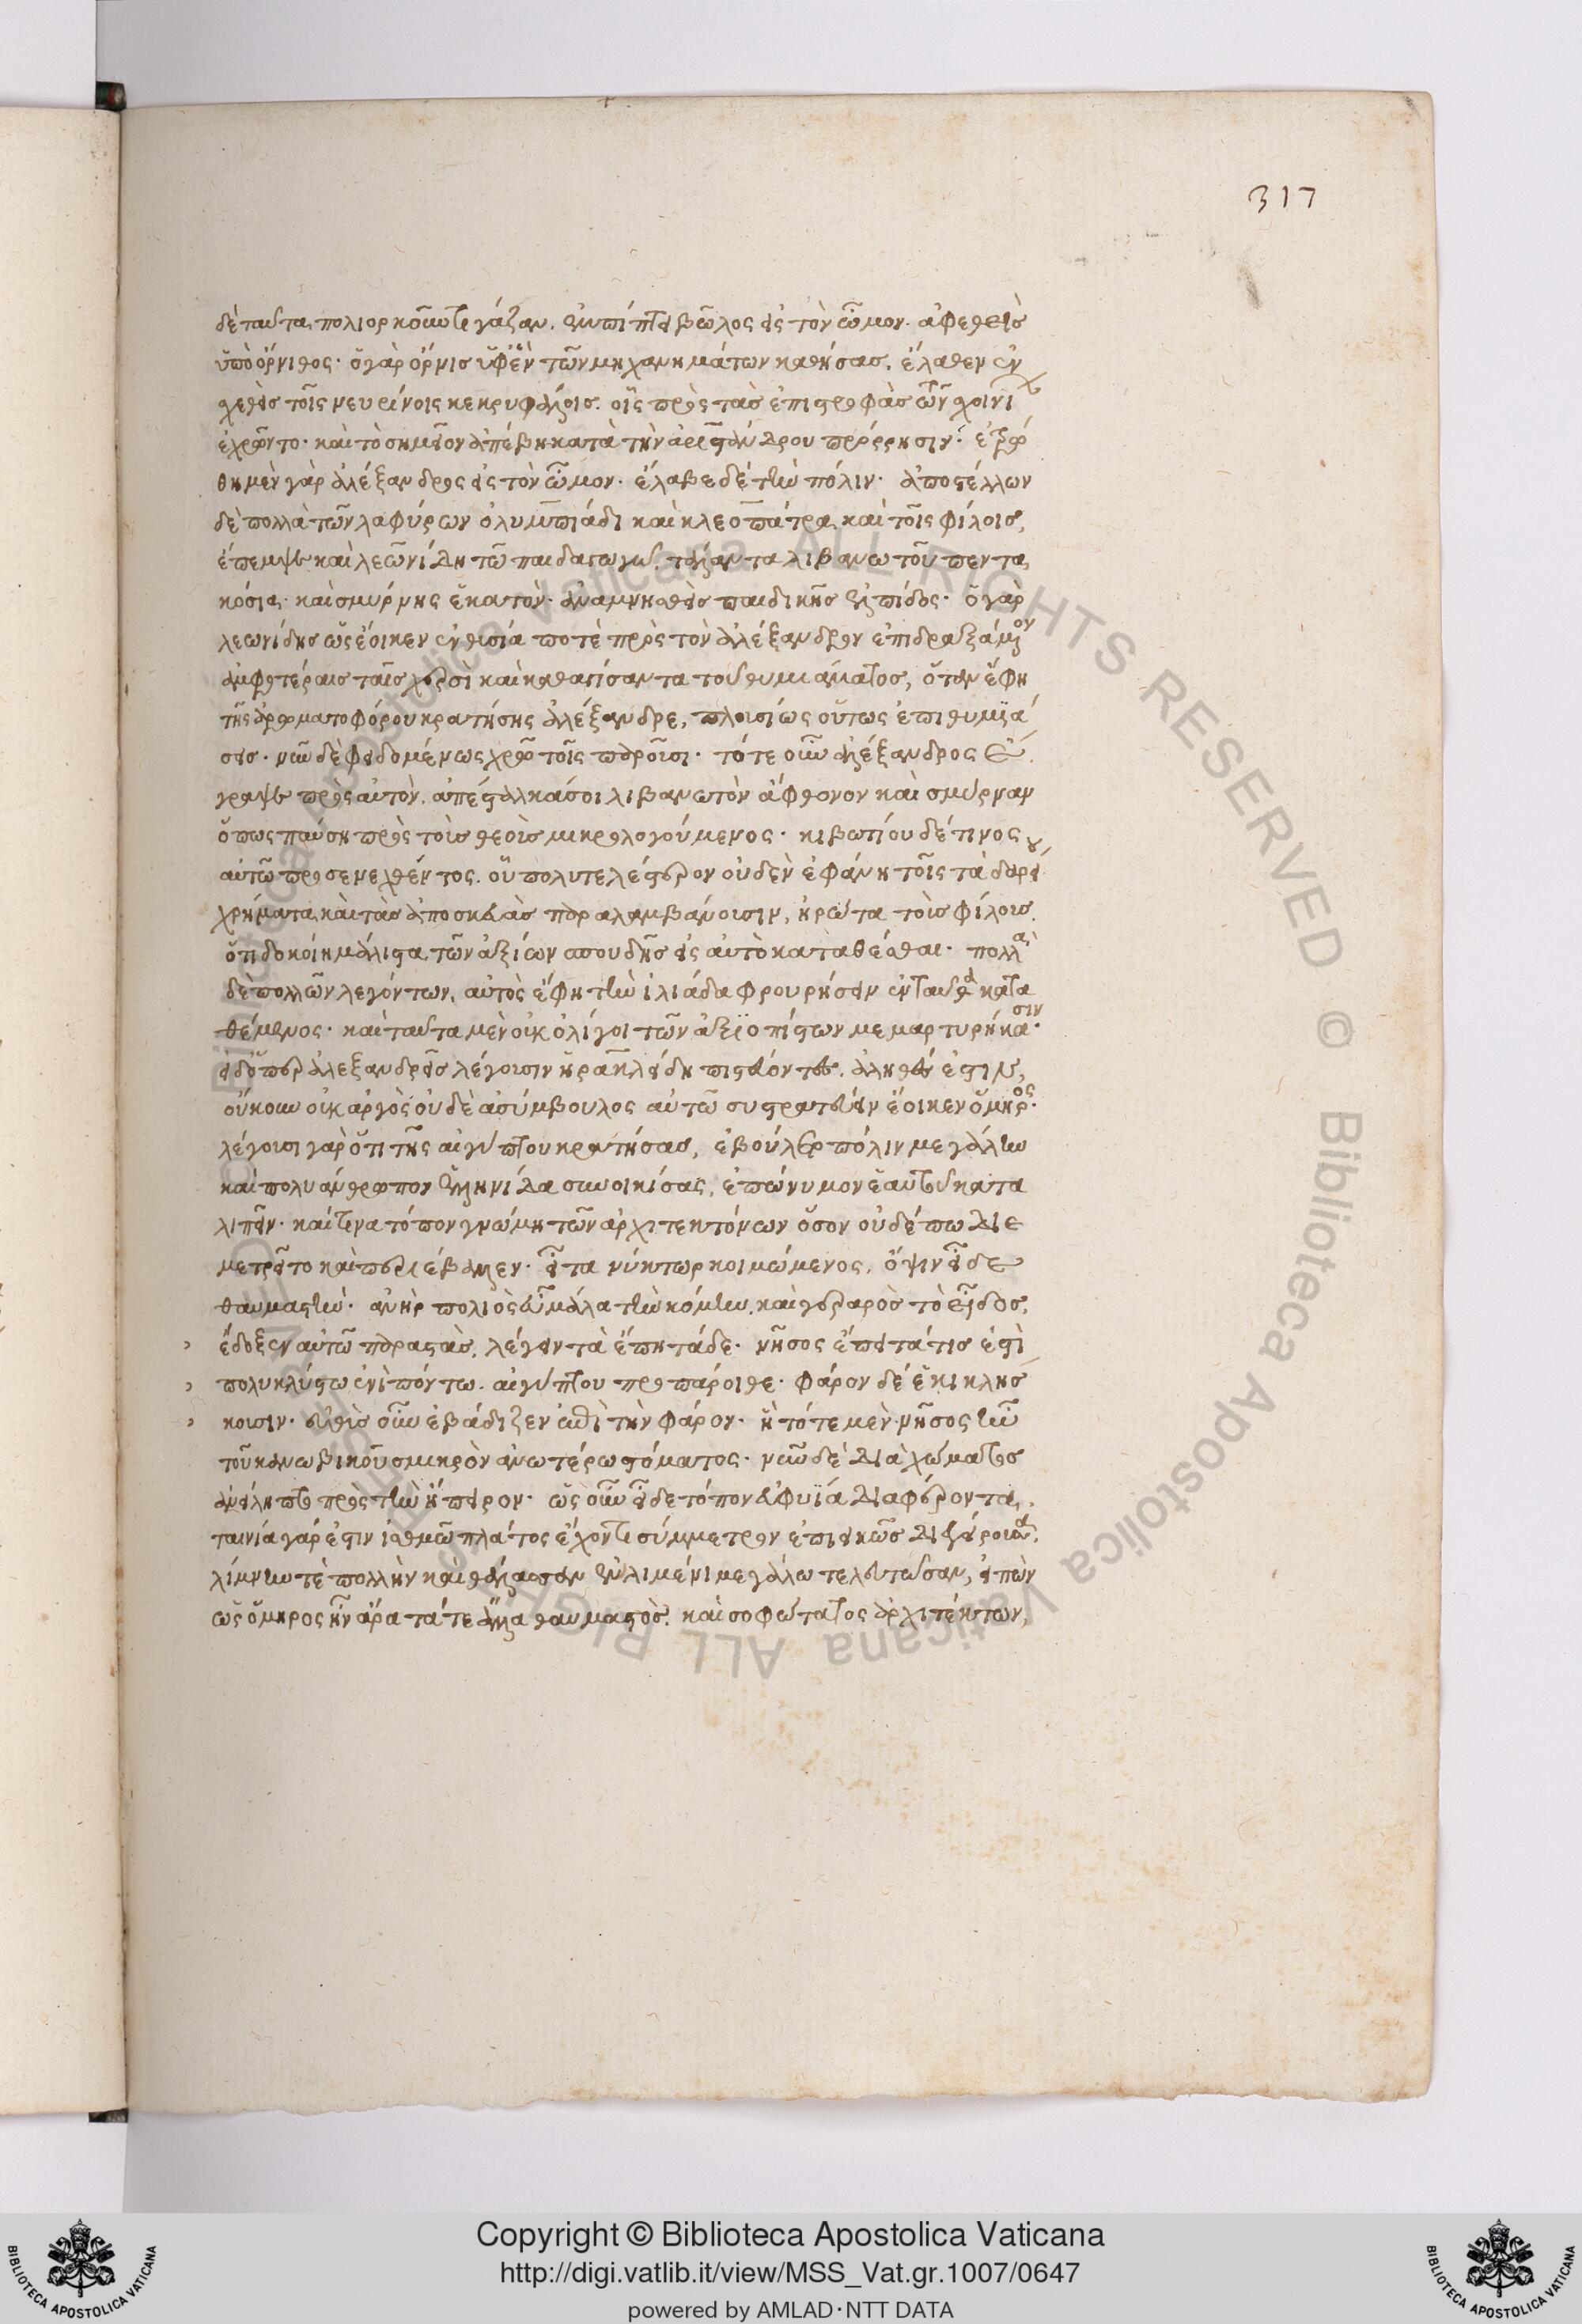 317
δὲ ταῦτα πολιορκοῦντι γάζαν, ἐμπίπτει βῶλος εἰς τὸν ὦμον. ἀφεθεὶς
ὑπὸ ὄρνιθος· ὁ γὰρ ὄρνις ὑφ' ἓν τῶν μηχανημάτων καθήσας, ἔλαθεν ἐν
χεθεὶς τοῖς νευρίνοις κεκρυφάλοις. οἷς πρὸς τὰς ἐπιστροφὰς τῶν σχοινί
ἐχρῶντο· καὶ τὸ σημεῖον ἀπέβη κατὰ τὴν ἀριστάνδρου πρόρρησιν· ἐτρώ
θη μὲν γὰρ ἀλέξανδρος εἰς τὸν ὦμον. ἔλαβε δὲ τὴν πόλιν· ἀποστέλλων
δὲ πολλὰ τῶν λαφύρων ὀλυμπιάδι καὶ κλεοπάτρα καὶ τοῖς φίλοις,
ἔπεμψε καὶ λεωνίδη τῶ παιδαγωγῶ, τάλαντα λιβανωτοῦ πεντα
κόσια· καὶ σμύρνης ἑκατόν· ἀναμνησθεὶς παιδικῆς ἐλπίδος· ὁ γὰρ
λεωνίδης ὡς ἔοικεν ἐν θυσία ποτὲ πρὸς τὸν ἀλέξανδρον ἐπιδραξάμενον
ἀμφοτέραις ταῖς χερσὶ καὶ καθαγίσαντα τοῦ θυμιάματος, ὅταν ἔφη
τῆς ἀρωματοφόρου κρατήσης ἀλέξανδρε, πλουσίως οὕτως ἐπιθυμϊά
σεις. νῦν δὲ φειδομένως χρῶ τοῖς παροῦσι· τότε οὖν ἀλέξανδρος ἔ
γραψε πρὸς αὐτόν. ἀπέσταλκά σοι λιβανωτὸν ἄφθονον καὶ σμύρναν
ὅπως παύση πρὸς τοὺς θεοὺς μικρολογούμενος· κιβωτίου δέ τινος
αὐτῶ προσενεχθέντος. οὗ πολυτελέστερον οὐδὲν ἐφάνη τοῖς τὰ δαρεί
χρήματα καὶ τὰς ἀποσκευὰς παραλαμβάνουσιν, ἠρώτα τοὺς φίλους
ὅτι δοκοίη μάλιστα τῶν ἀξίων σπουδῆς εἰς αὐτὸ καταθέσθαι· πολλὰ
δὲ πολλῶν λεγόντων, αὐτὸς ἔφη τὴν ἰλιάδα φρουρήσειν ἐνταῦθα κατα
θέμενος· καὶ ταῦτα μὲν οὐκ ὀλίγοι τῶν ἀξϊοπίστων μεμαρτυρήκασιν.
εἰ δ' ὅπερ ἀλεξανδρεῖς λέγουσιν ἡρακλείδη πιστεύοντες, ἀληθές ἐστιν,
οὔκουν οὐκ ἀργὸς οὐδὲ ἀσύμβουλος αὐτῶ συστρατεύειν ἔοικεν ὅμηρος.
λέγουσι γὰρ ὅτι τῆς αἰγύπτου κρατήσας, ἐβούλετο πόλιν μεγάλην
καὶ πολυάνθρωπον ἑλληνίδα συνοικίσας, ἐπώνυμον ἑαυτοῦ κατα
λιπεῖν· καί τινα τόπον γνώμη τῶν ἀρχιτεκτόνων ὅσον οὐδέπω διε
μετρεῖτο καὶ περιέβαλλεν· εἶτα νύκτωρ κοιμώμενος, ὄψιν εἶδε
θαυμαστήν· ἀνὴρ πολιὸς εὖ μάλα τὴν κόμην, καὶ γεραρὸς τὸ εἶδος,
ἔδοξεν αὐτῶ παραστὰς, λέγειν τὰ ἔπη τάδε· νῆσος ἔπειτά τις ἐστὶ
πολυκλύστω ἐνὶ πόντω. αἰγύπτου προπάροιθε· φάρον δέ ἑ κικλήσ
κουσιν· εὐθὺς οὖν ἐβάδιζεν ἐπὶ τὴν φάρον· ἣ τότε μὲν νῆσος ἦν
τοῦ κανωβικοῦ σμικρὸν ἀνωτέρω στόματος· νῦν δὲ διὰ χώματος
ἀνείληπται πρὸς τὴν ἤπειρον· ὡς οὖν εἶδε τόπον εὐφυΐα διαφέροντα,
ταινία γάρ ἐστιν ἰσθμῶ πλάτος ἔχοντι σύμμετρον ἐπιεικῶς διείργουσα
λίμνην τὲ πολλὴν καὶ θάλασσαν ἐν λιμένι μεγάλω τελευτῶσαν, εἰπὼν
ὡς ὅμηρος ἦν ἄρα τά τε ἄλλα θαυμαστὸς. καὶ σοφώτατος ἀρχιτέκτων,
Copyright © Biblioteca Apostolica Vaticana
http://digi.vatlib.it/view/MSS_Vat.gr.1007/0647
powered by AMLAD·NTT DATA